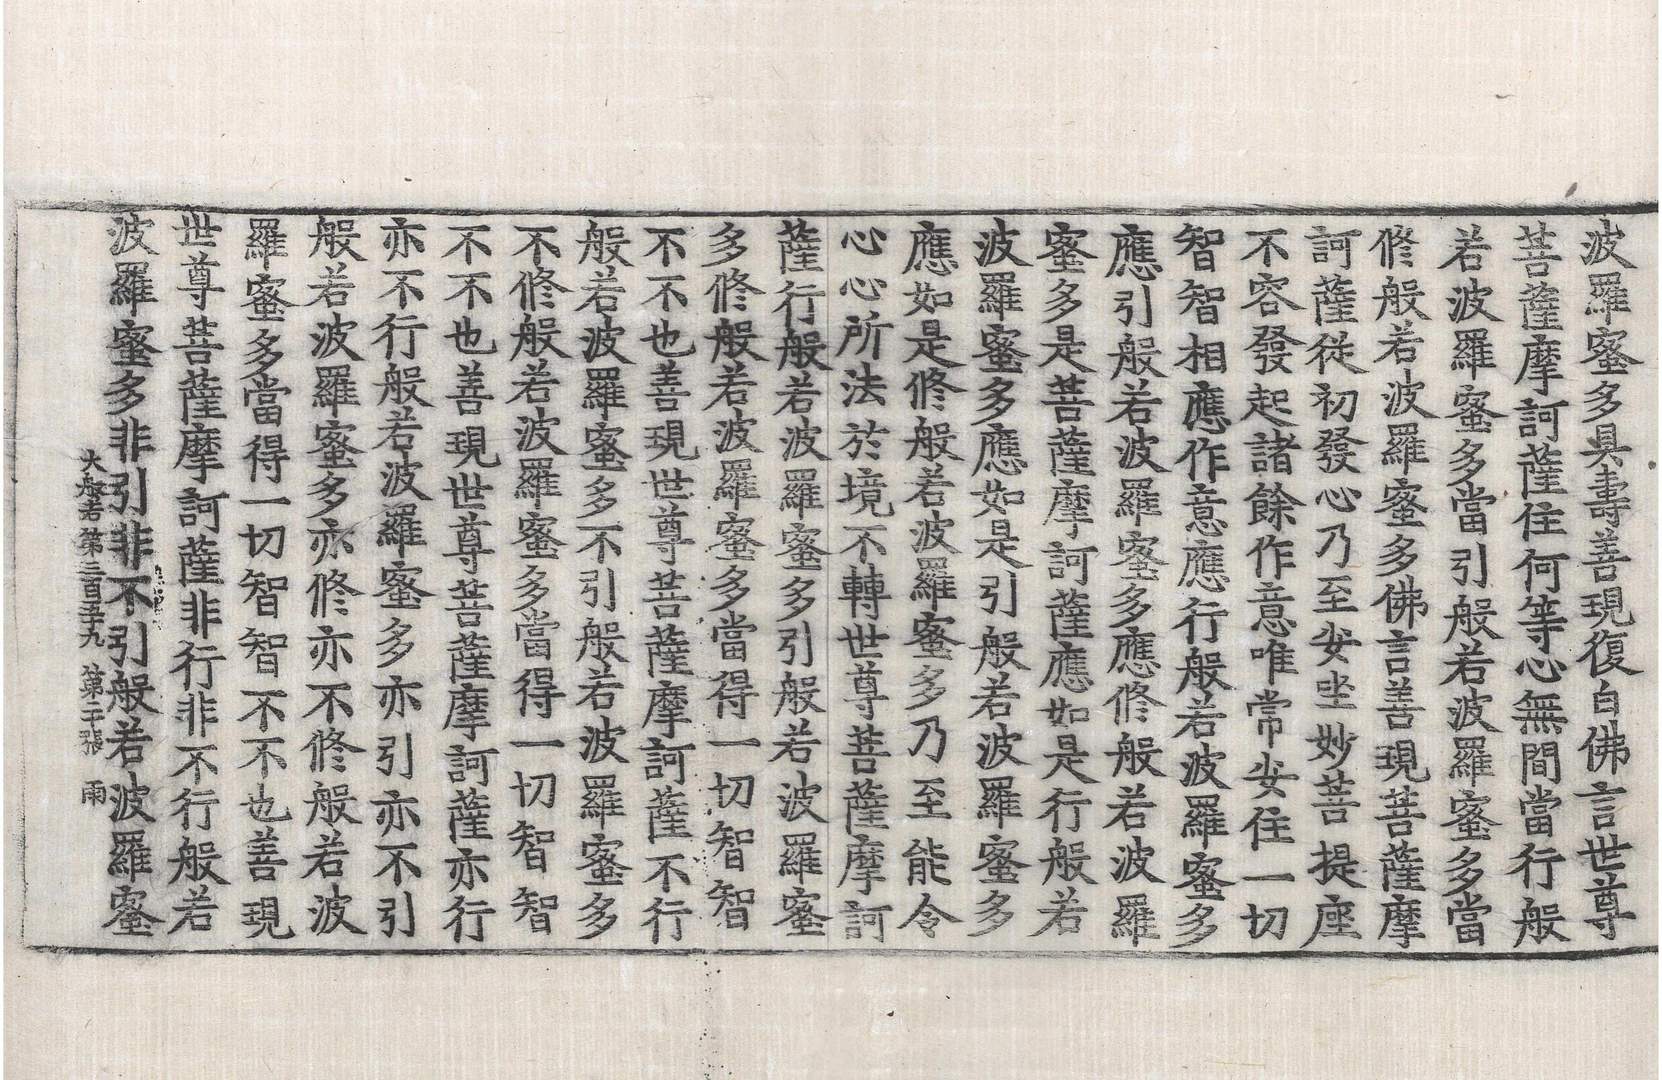 波羅蜜多具壽善現復白佛言世尊
菩薩摩訶薩住何等心無間當行般
若波羅蜜多當引般若波羅蜜多當
修般若波羅蜜多佛言善現菩薩摩
訶薩從初發心乃至安坐妙菩提座
不容發起諸餘作意唯常安住一切
智智相應作意應行般若波羅蜜多
應引般若波羅蜜多應修般若波羅
蜜多是菩薩摩訶薩應如是行般若
波羅蜜多應如是引般若波羅蜜多
應如是修般若波羅蜜多乃至能令
心心所法於境不轉世尊菩薩摩訶
薩行般若波羅蜜多引般若波羅蜜
多修般若波羅蜜多當得一切智智
不不也善現世尊菩薩摩訶薩不行
般若波羅蜜多不引般若波羅蜜多
不修般若波羅蜜多當得一切智智
不不也善現世尊菩薩摩訶薩亦行
亦不行般若波羅蜜多亦引亦不引
般若波羅蜜多亦修亦不修般若波
羅蜜多當得一切智智不不也善現
世尊菩薩摩訶薩非行非不行般若
波羅蜜多非引非不引般若波羅蜜
大般若第三百五十九 第二張 雨